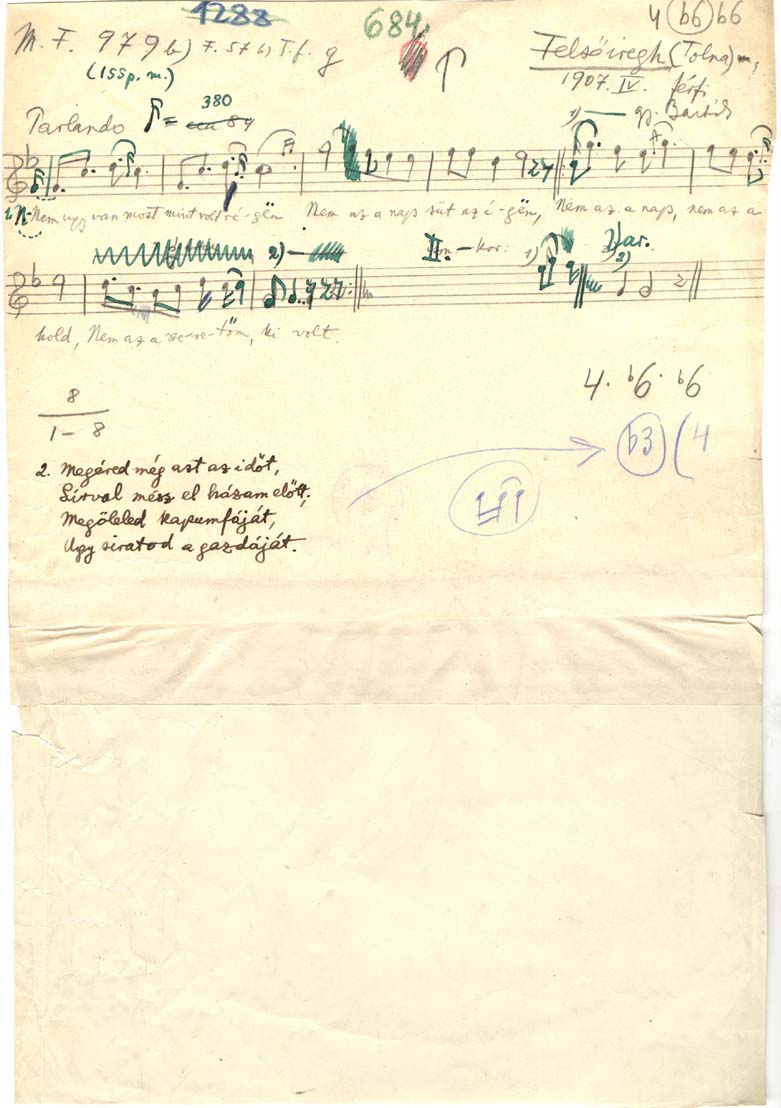 1288
684.
4 b6 b6
M. F. 979 b) F. 57 b) T.f. g
Felsőiregh (Tolna)
(155 p. m.)
1907. IV. férfi
gy. Bartók
Parlando = 380
cca 84
1. Nem ugy van most mint volt régën Nem az a nap süt az égën, Nem az a nap, nem az a
2)
II. kor: 1) Var. 2)
hold, Nem az a szeretőm, ki volt.
4. b6. b6
8
1 - 8
b3 ( 4
2. Megéred még azt az időt,
Sírval mész el házam előtt,
Megöleled kapumfáját,
Ugy siratod a gazdáját.